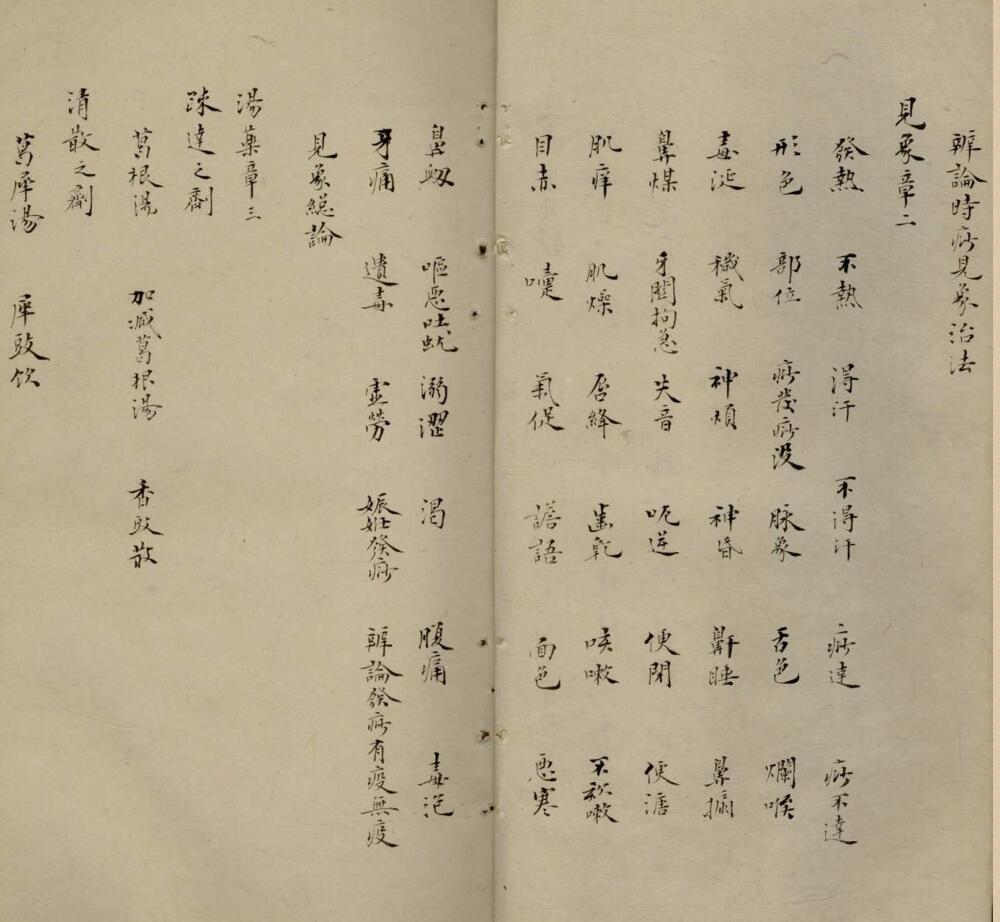 辨論時痧見象治法
見象章二
發熱 不熱 得汗 不得汗 痧達 痧不達
形色 部位 痧發痧没 脉象 舌色 爛喉
毒涎 穢氣 神煩 神昏 鼾睡 鼻搧
鼻煤 牙關拘急 失音 呃逆 便閉 便溏
肌痒 肌燥 唇絳 齒乾 咳嗽 不咳嗽
目赤 嚏 氣促 譫語 面色 惡寒
鼻衂 嘔惡吐蚘 溺澀 渴 腹痛 毒泡
牙痛 遺毒 虛勞 娠妊發痧 辨論發痧有疫無疫
見象總論
湯藥章三
踈達之劑
葛根湯 加减葛根湯 香豉散
清散之劑
葛犀湯 犀豉飲